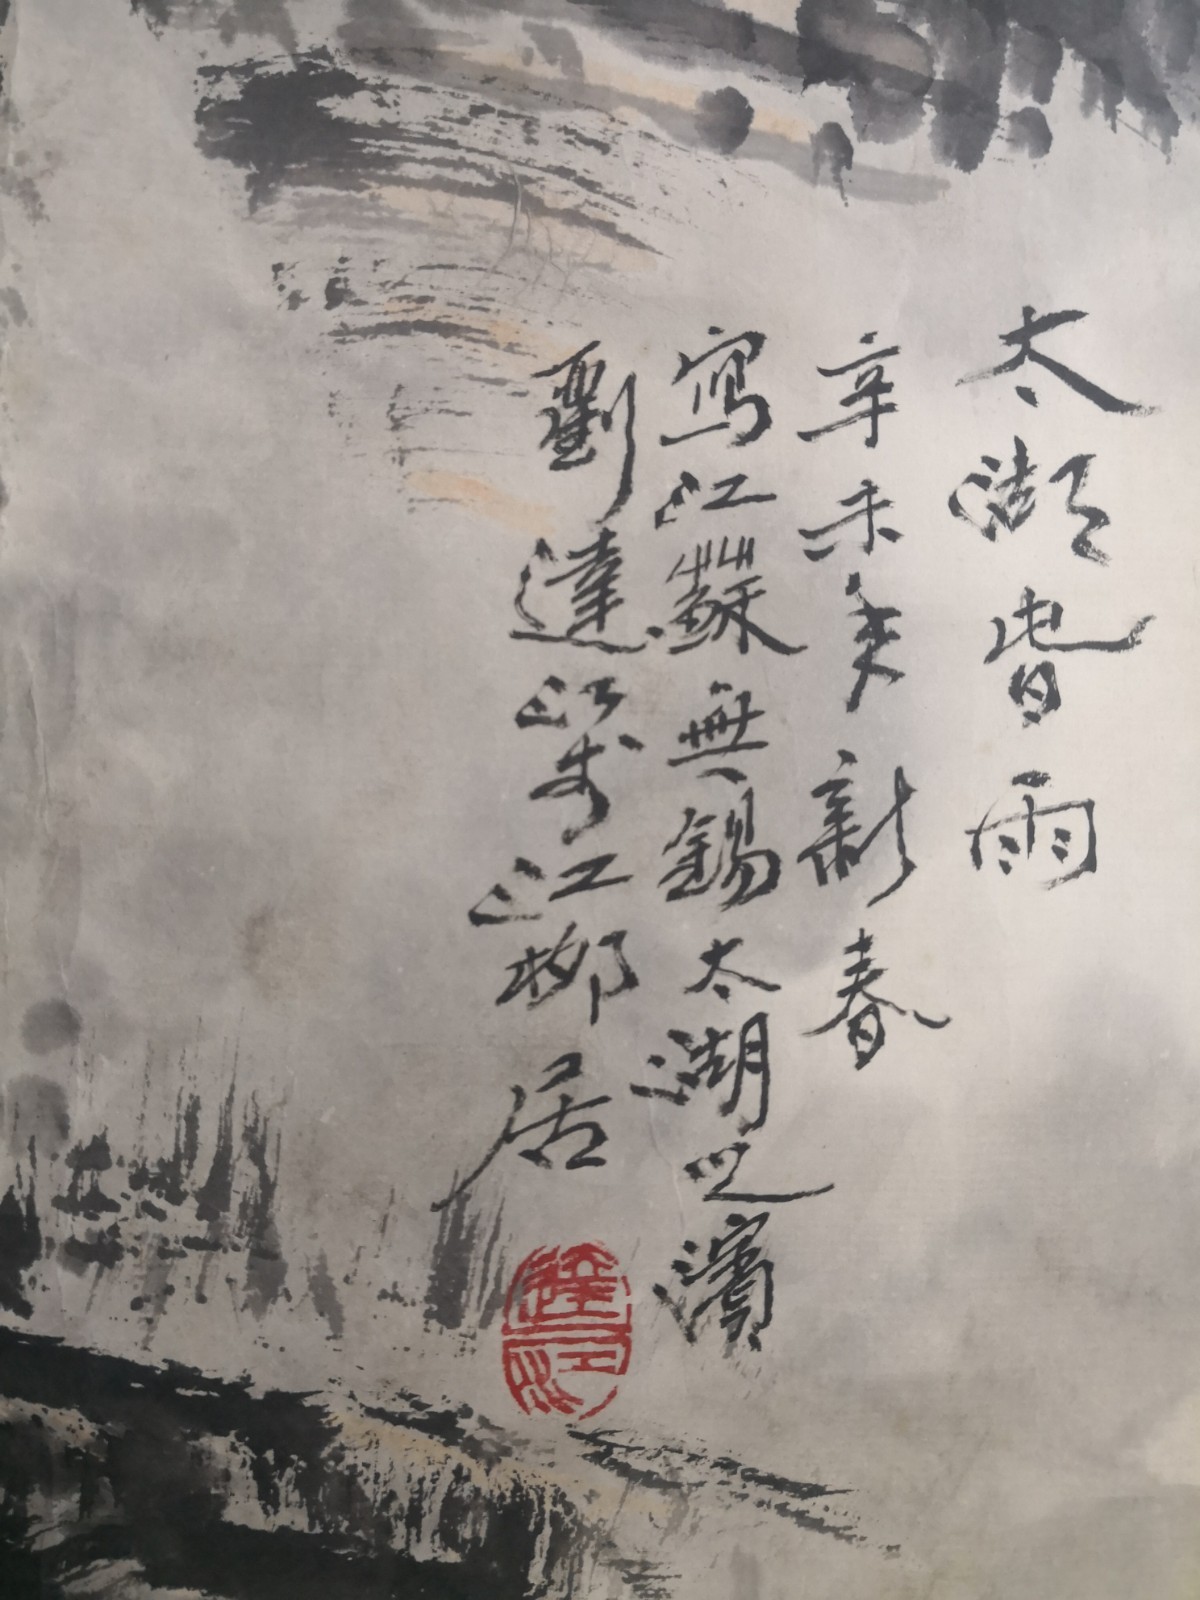 太湖旹雨
辛未秊新春
寫江蘇無錫太湖之濱
劉達江於江柳居
達江